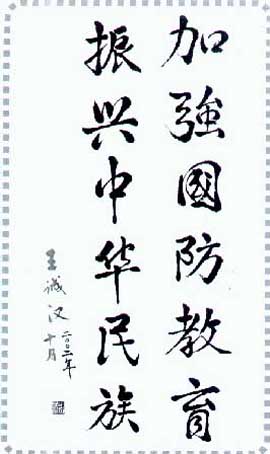 加強國防教育
振兴中华民族
王诚汉
二〇〇二年
十月